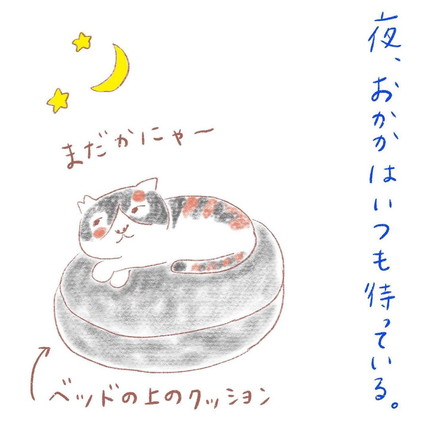 夜、おかかはいつも待っている。
まだかにゃー
ベッドの上のクッション